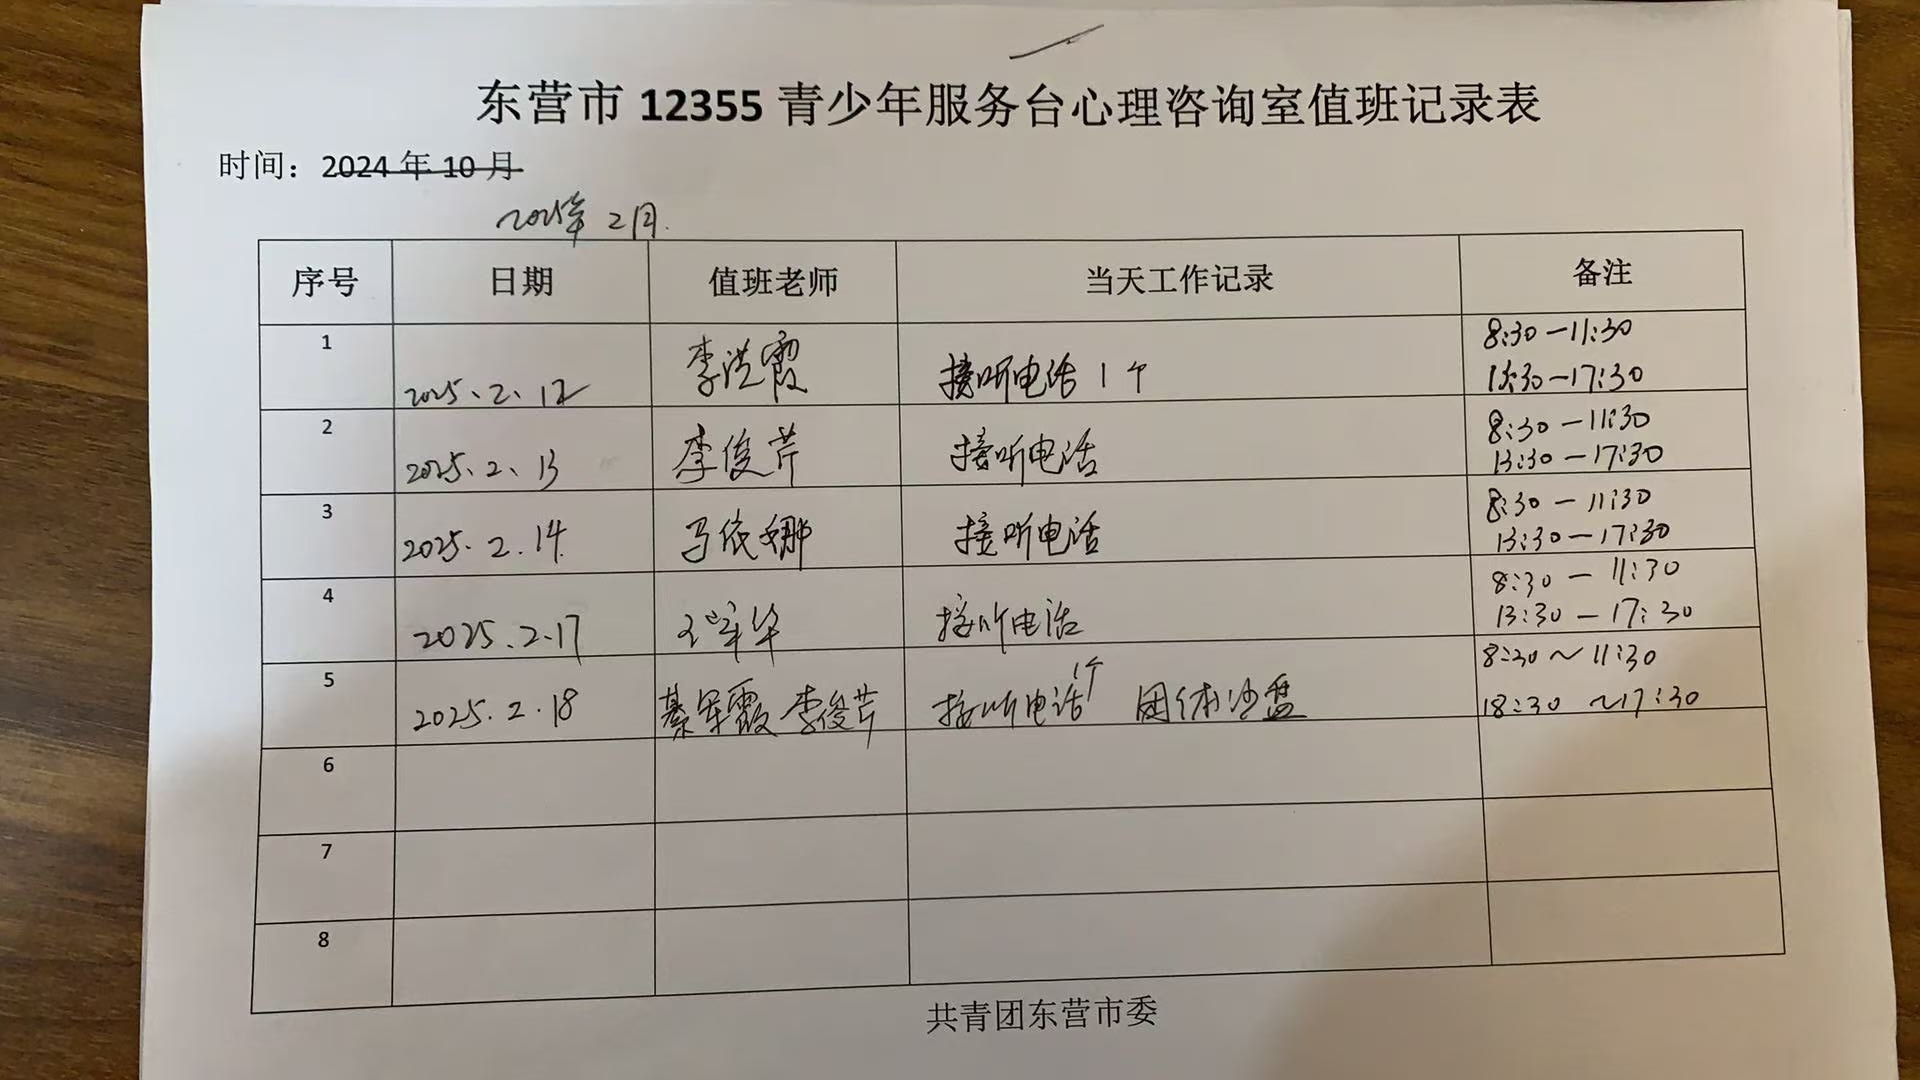 东营市 12355 青少年服务台心理咨询室值班记录表
时间：2024 年 10 月
2025年 2月.
序号 日期 值班老师 当天工作记录 备注
1 2025.2.12 李洪霞 接听电话 1个 8:30-11:30
13:30-17:30
2 2025.2.13 李俊芹 接听电话 8:30-11:30
13:30-17:30
3 2025.2.14 马依娜 接听电话 8:30-11:30
13:30-17:30
4 2025.2.17 华 接听电话 8:30-11:30
13:30-17:30
5 2025.2.18 綦军霞 李俊芹 接听电话1个 团体沙盘 8:30~11:30
18:30~17:30
6
7
8
共青团东营市委